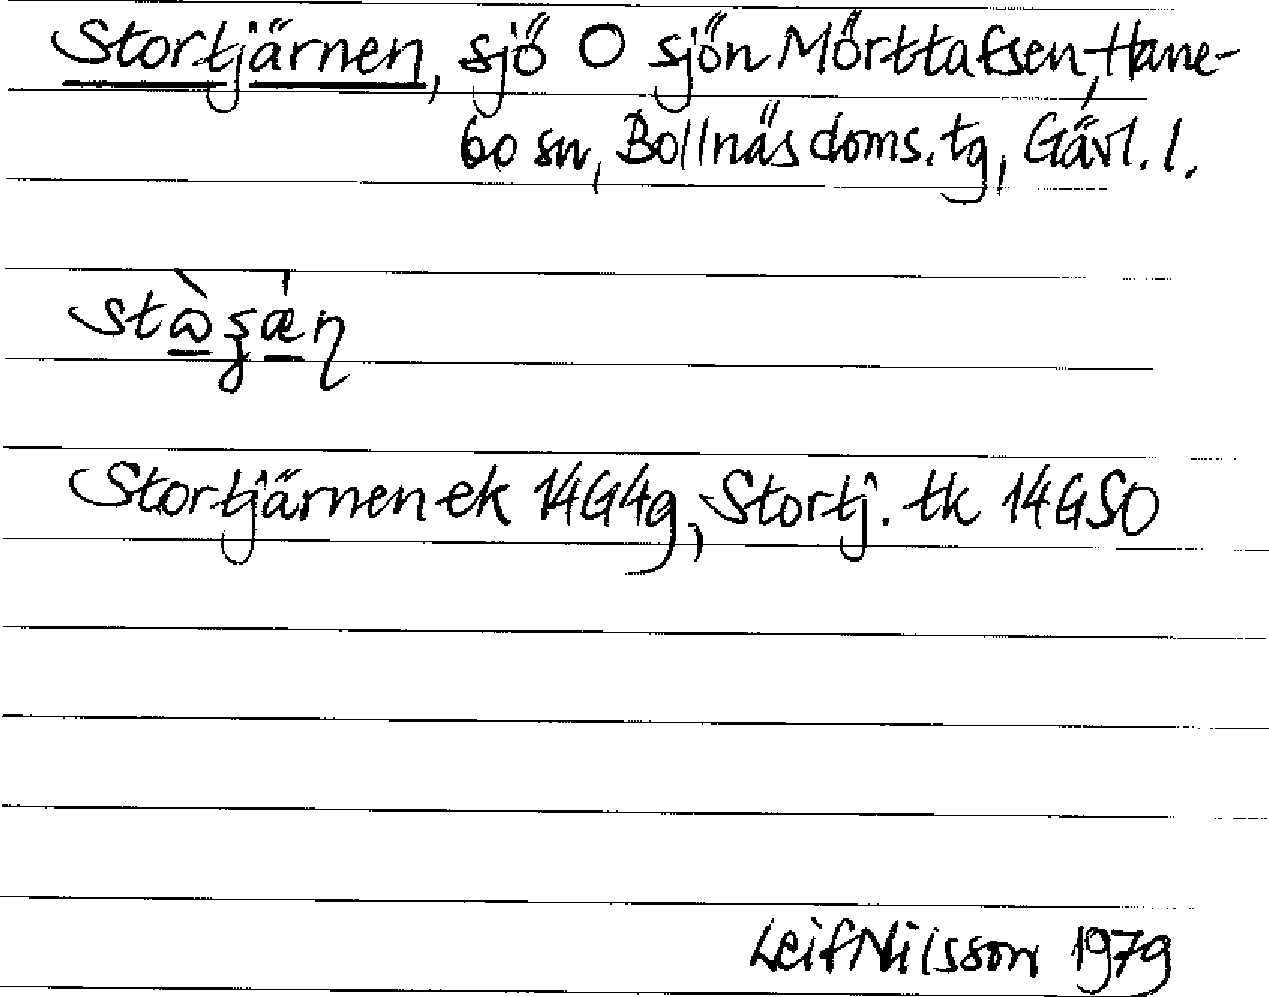 Stortjärnen, sjö O sjön Mörttafsen, Hane-
bo sn, Bollnäs doms. tg, Gävl. l.
Stortjärnen ek 14G4g, Stortj. tk 14GSO
Leif Nilsson 1979